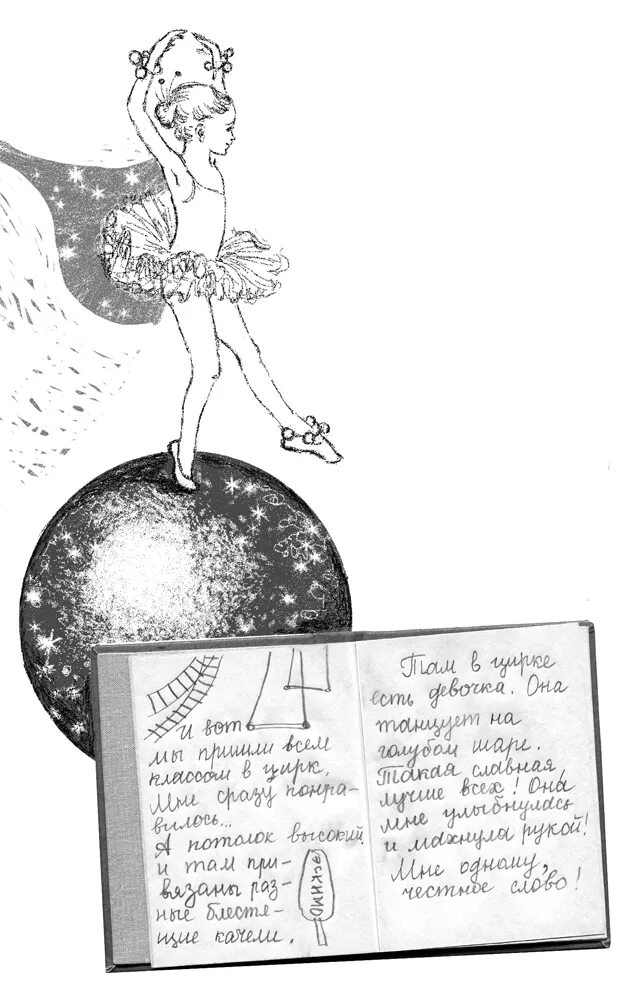 И вот
мы пришли всем
классом в цирк.
Мне сразу понра-
вилось...
А потолок высокий
и там при-
вязаны раз-
ные блестя-
щие качели.
ЭСКИМО
Там в цирке
есть девочка. Она
танцует на
голубом шаре.
Такая славная,
лучше всех! Она
мне улыбнулась
и махнула рукой!
Мне одному,
честное слово!